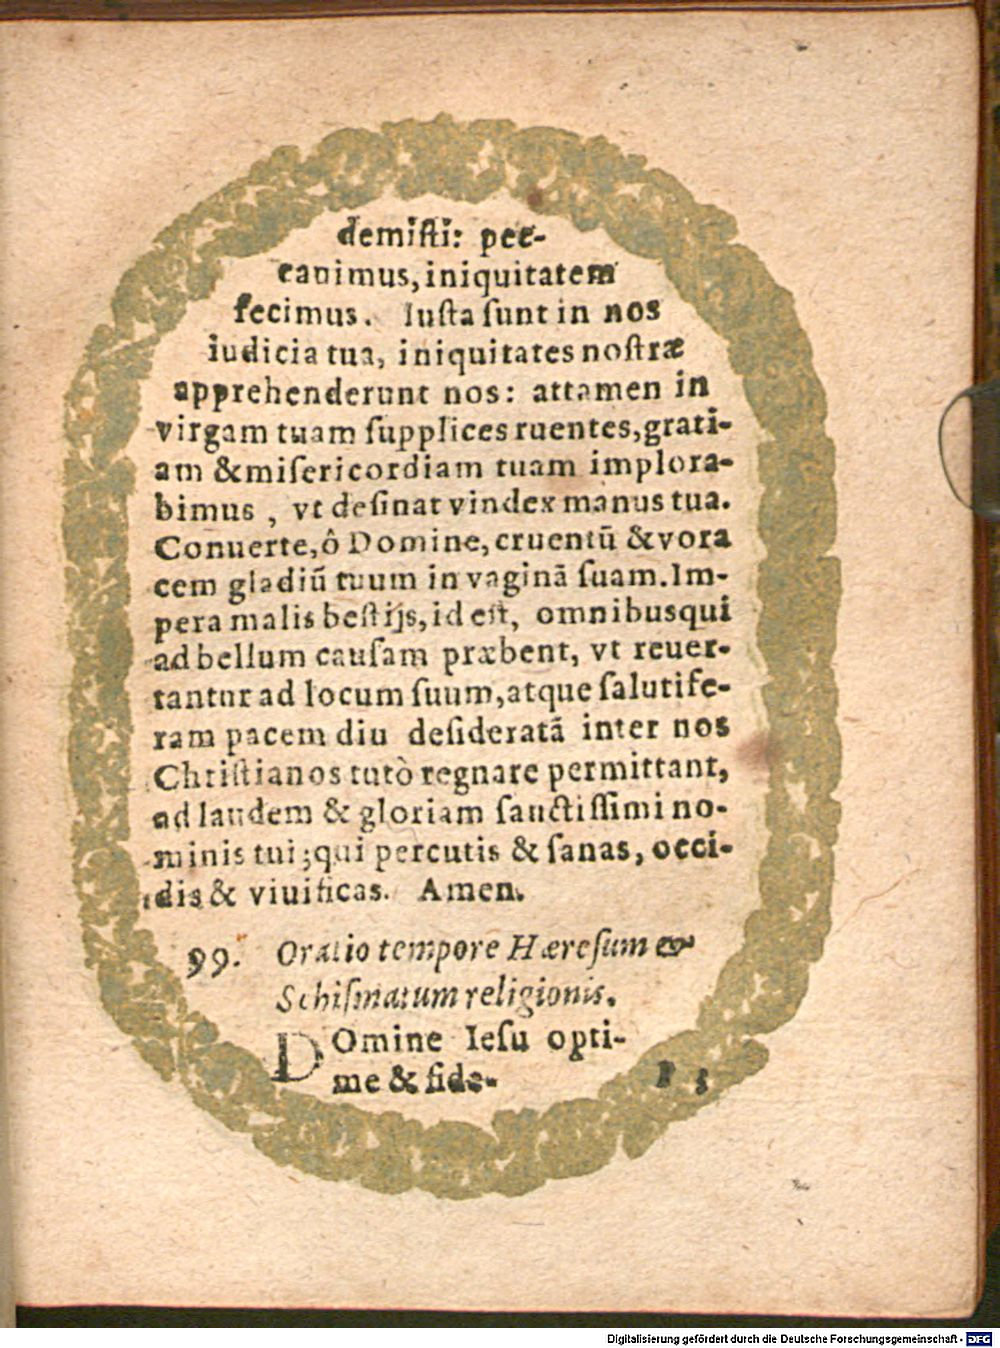 demiſti: pec-
cauimus, iniquitatem
fecimus. Iuſta ſunt in nos
iudicia tua, iniquitates noſtræ
apprehenderunt nos: attamen in
virgam tuam ſupplices ruentes, grati-
am & miſericordiam tuam implora-
bimus, vt deſinat vindex manus tua.
Conuerte, ô Domine, cruentū & vora
cem gladiū tuum in vaginā ſuam. Im-
pera malis beſtijs, id eſt, omnibus qui
ad bellum cauſam præbent, vt reuer-
tantur ad locum ſuum, atque ſalutife-
ram pacem diu deſideratā inter nos
Chriſtianos tutò regnare permittant,
ad laudem & gloriam ſanctiſſimi no-
minis tui; qui percutis & ſanas, occi-
dis & viuificas. Amen.
99. Oratio tempore Hæreſum &
Schiſmatum religionis.
DOmine Ieſu opti-
me & fide-
P 5
Digitalisierung gefördert durch die Deutsche Forschungsgemeinschaft - DFG